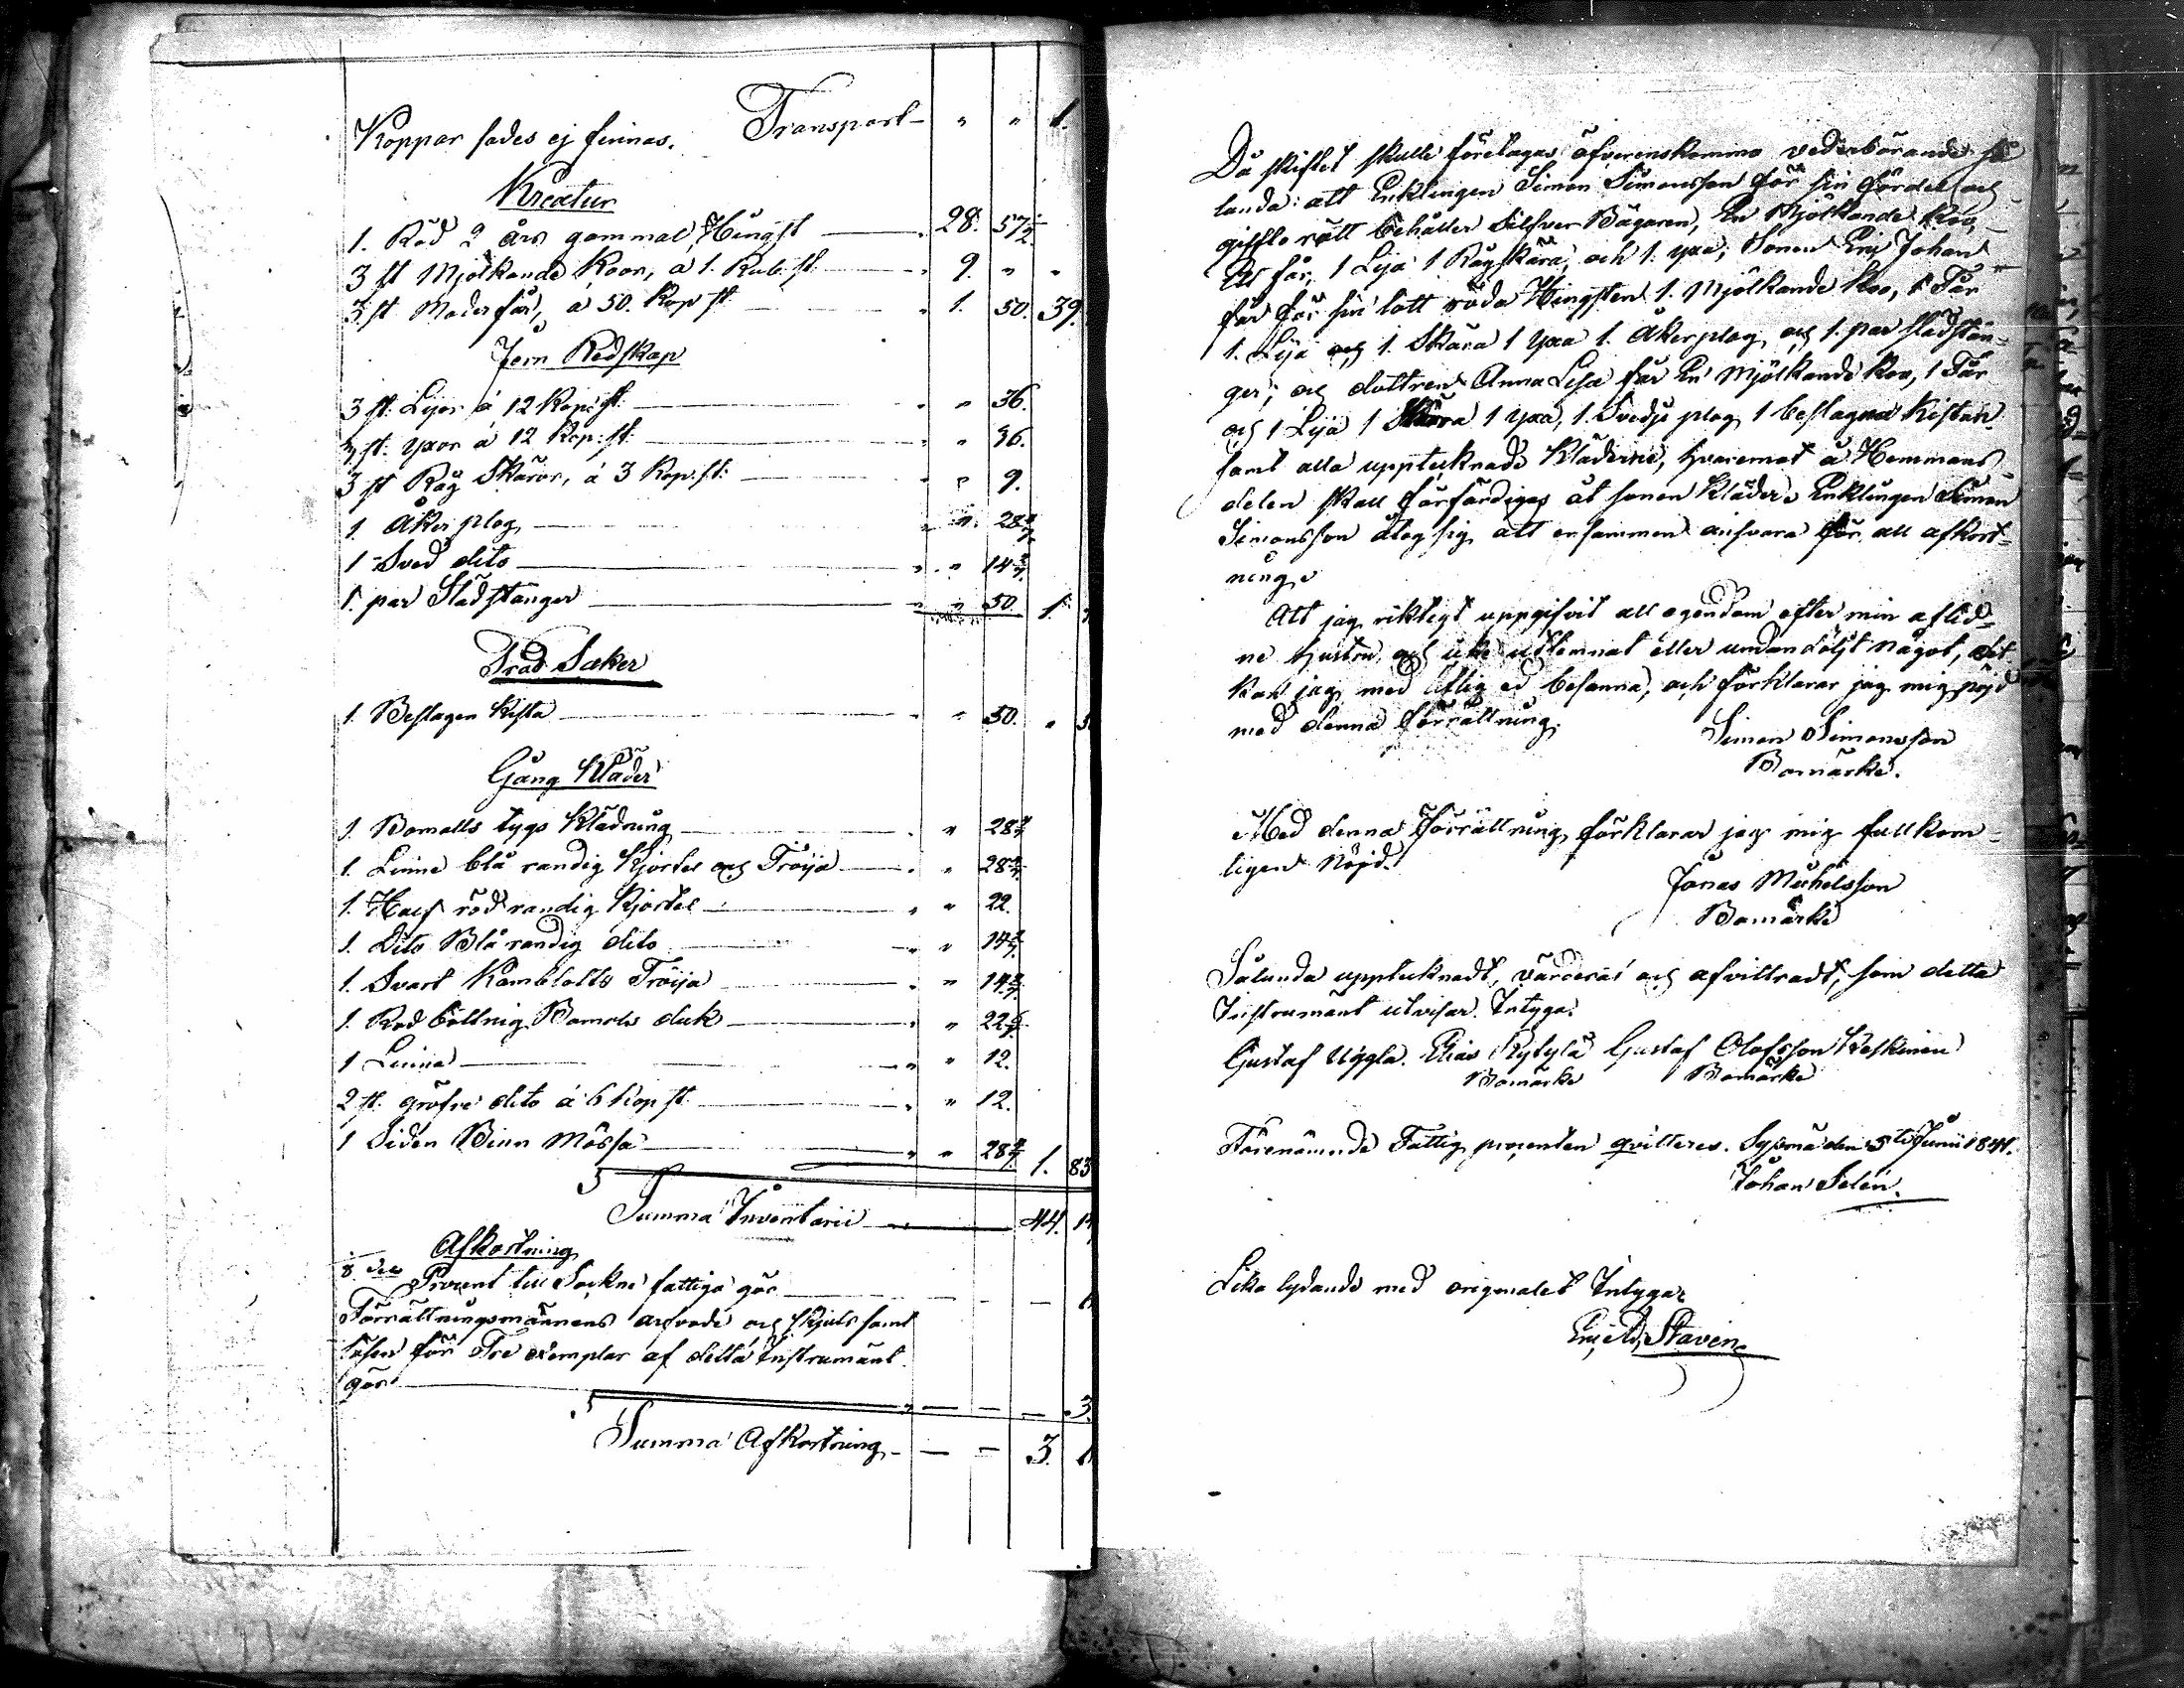 Koppar sades ej finnas. Transport — " " 1.
Kreatur
1. Röd 2 års gammal Hingst — 28. 57 1/2
3 st Mjölkande Koor, a 1. Rub. st. — 9. " "
3. st Moderfår, a 50. Kop st. — 1. 50. 39.
Jern Redskap
3 st. Lijor á 12 Kop. st. — " 36.
3 st. yxor a 12 Kop. st. — " 36.
3 st Råg Skäror, á 3 Kop. st. — " 9.
1. Åker plog — " 28 4/7
1 Sved dito — " 14 2/7
1. par Slädstänger — " 50. 1.
Träd Saker
1. Beslagen Kista — " 50. "
Gång Kläder
1. Bomulls tygs Klädning — " 28 4/7
1. Linne blå randig Kjortel och Tröija — " 28 4/7
1. Half röd randig Kjortel — " 22.
1. Dito Blå randig dito — " 14 2/7
1. Svart Kamblotts Tröija — " 14 2/7
1. Röd bottnig Bomuls duk — " 22 6/7
1 Linne — " 12.
2 st. gröfre dito á 6 Kop st. — " 12.
1 Siden Binn Mössa — " 28 4/7 1. 83
Summa Inventarii — 44.
Afkortning
8 dels Procent till Sockne fattiga gör —
Förrättningsmännens arfvode och skjuts samt
lösen för Tre exemplar af detta Instrumänt
gör — 3.
Summa Afkortning — 3.
Då skiftet skulle företagas öfverenskommo vederbörande så
lunda: att Enklingen Simon Simonsson för sin fördel och
giftto rätt behåller Silfver Bägaren, En Mjölkande Koo,
Et får, 1 Lija 1 Rågskära, och 1. yxa; Sonen Eric Johan
får för sin lott röda Hingsten 1. Mjölkande Koo, 1 Får
1. Lija och 1. Skära 1 yxa 1. Åkerplog och 1. par slädstän-
ger; och dottren Anna Lisa får En Mjölkande Koo, 1 Får
och 1 Lija 1 Skära 1 yxa, 1. Svedje plog 1 beslagna Kistan
samt alla upptecknade Kläderne, hvaremot å Hemmans
delen skall förfärdigas åt sonen Kläder. Enklingen Simon
Simonsson åtog sig att ensammen ansvara för all afkort-
ning.
Att jag riktigt uppgifvit all egendom efter min aflid-
ne hustru, och icke utlemnat eller undandöljt något, det
kan jag med liflig ed besanna, och förklarar jag mig nöjd
med denna förrättning. Simon Simonsson
Bomärke.
Med denna Förrättning förklarar jag mig fullkom-
ligen Nöjd. Jonas Michelsson
Bomärke
Sålunda upptecknadt, värderat och afvittradt, som detta
Instrumänt utvisar. Intyga:
Gustaf Uggla. Elias Kylylä Gustaf Olofsson Keskinen
Bomärke Bomärke
Förenämnde Fattig procenten qvitteres. Sysmä den 5te Junii 1841.
Johan Selin.
Lika lydande med originalet Intygar
Stavén